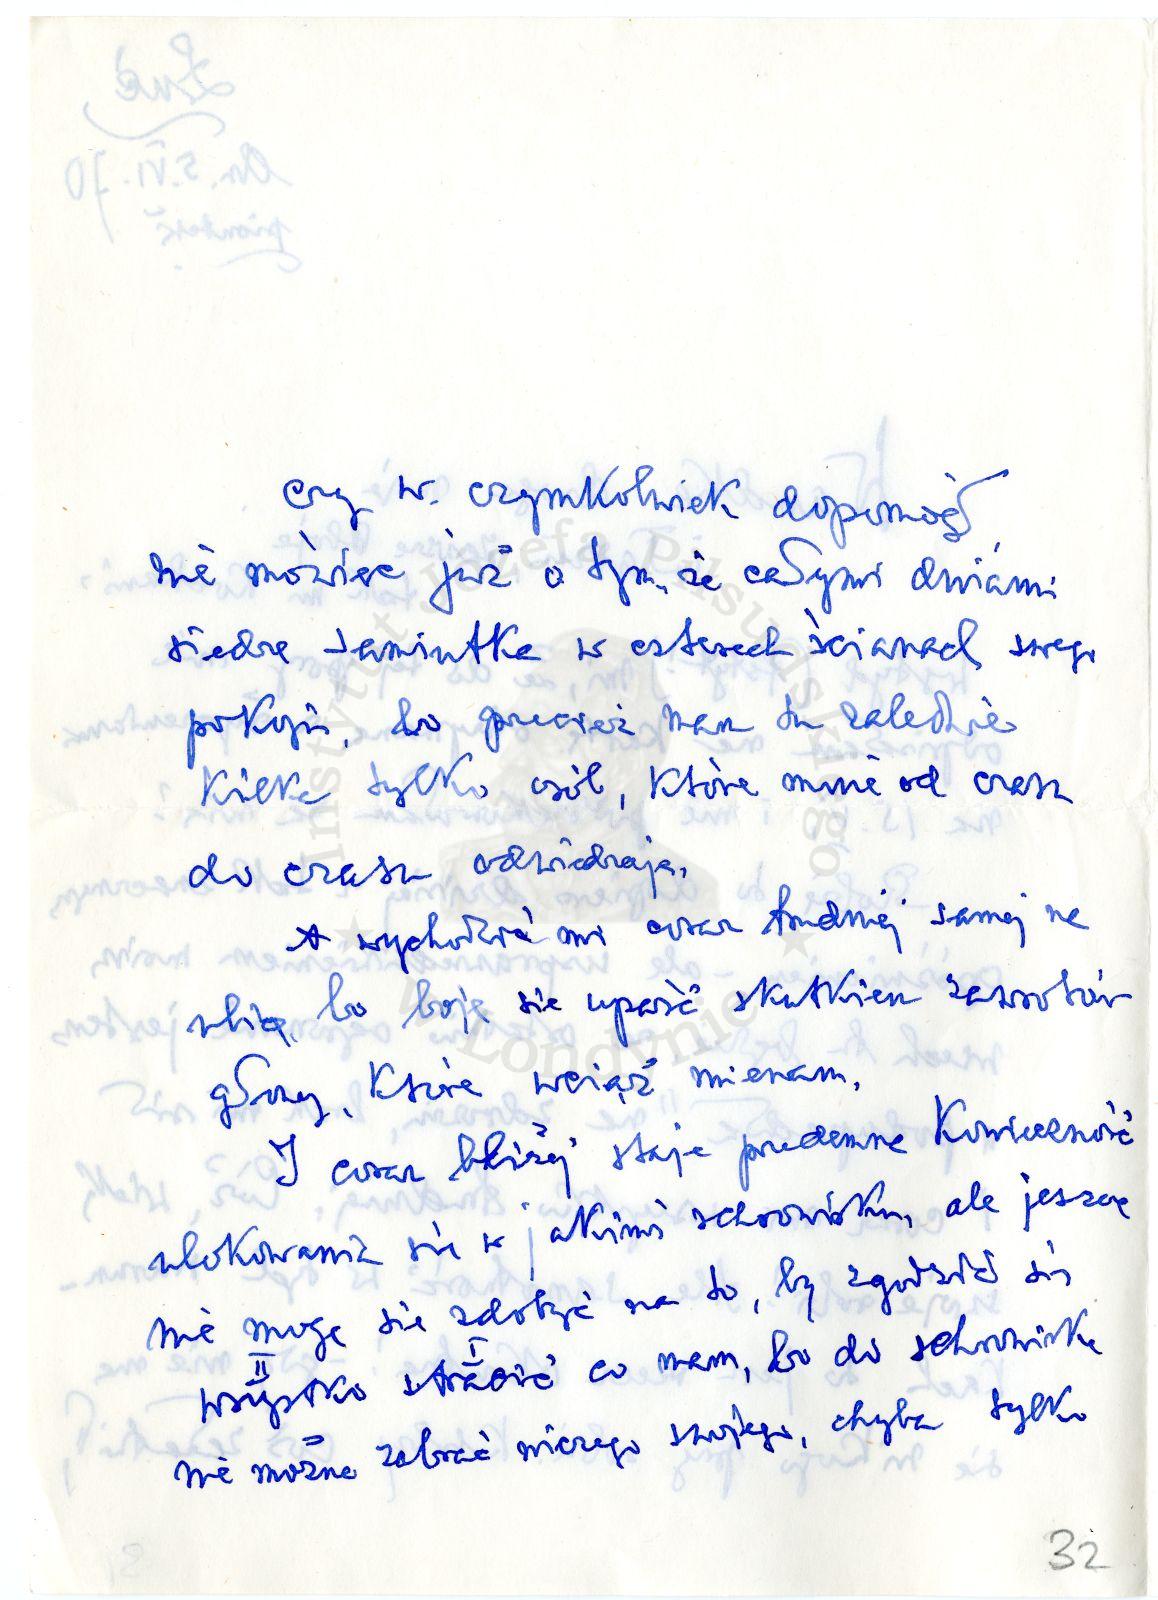 czy w. czymkolwiek dopomógł
nie mówiąc już o tym, że całymi dniami
siedzę samiutka w czterech ścianach swego
pokoju, bo przecież mam tu zaledwie
kilka tylko osób, które mnie od czasu
do czasu odwiedzają.
A wychodzić mi coraz trudniej samej na
ulicę, bo boję się upaść skutkiem zawrotów
głowy, które wciąż miewam.
I coraz bliżej staje przedemną konieczność
ulokowania się w jakimś schronisku, ale jeszcze
nie mogę się zdobyć na to, by zgodzić się
II I
wszystko stracić co mam, bo do schroniska
nie można zabrać niczego swojego, chyba tylko
32
Instytut Józefa Piłsudskiego
w Londynie